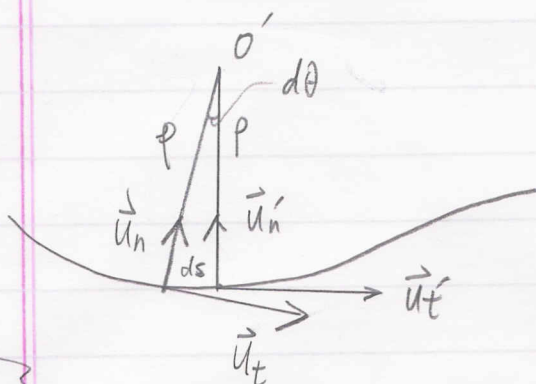 O′
dθ
ρ
ρ
u⃗n
u⃗n′
ds
u⃗t′
u⃗t